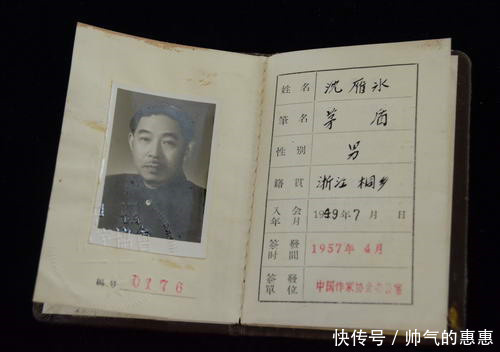 編号 0176
姓名 沈雁冰
筆名 茅盾
性别 男
籍貫 浙江桐乡
入会年月 1949年7月 日
簽發时間 1957年4月
簽發單位 中国作家协会办公室
快传号/帅气的惠惠